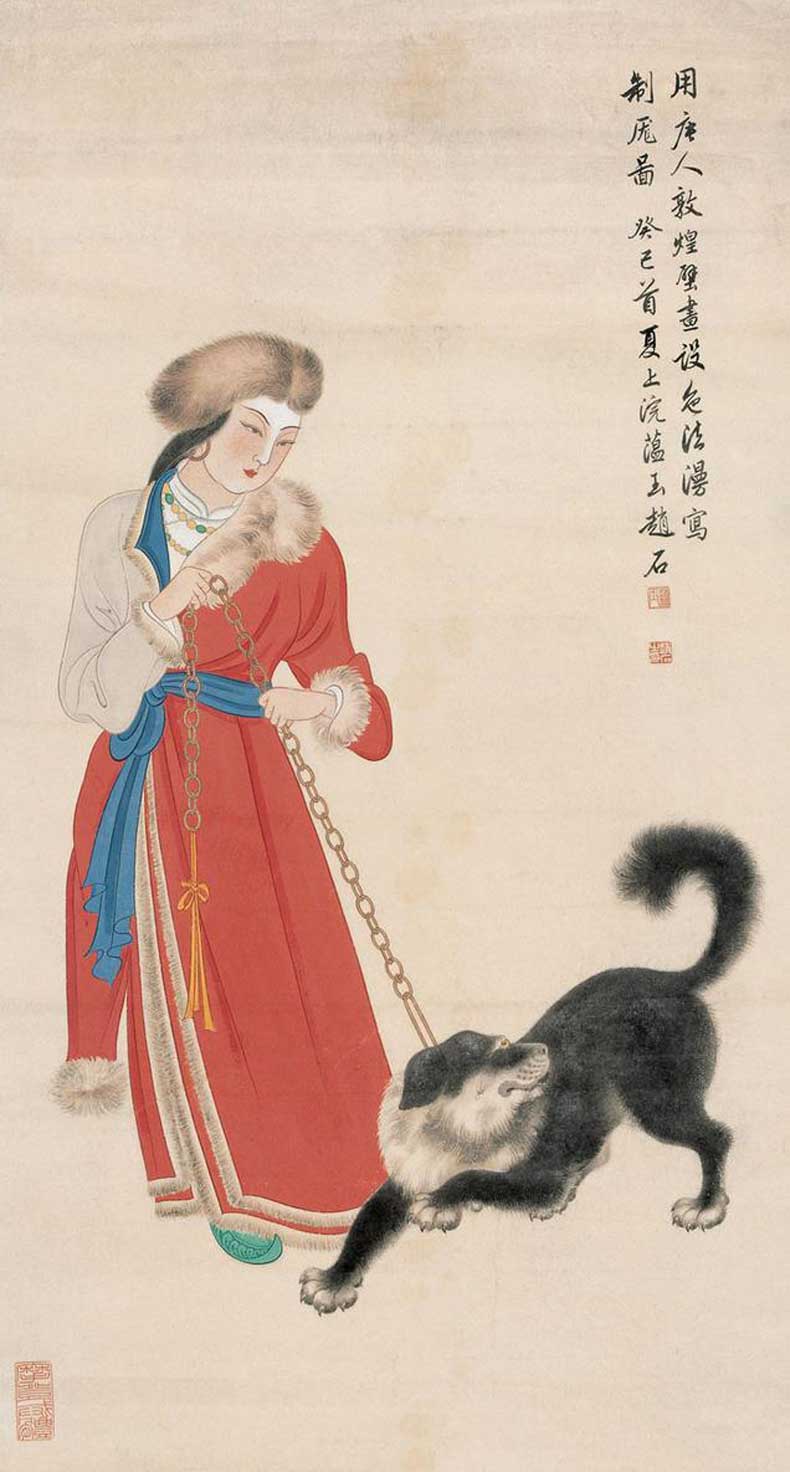 用唐人敦煌壁畫设色法漫寫
制厖啚 癸巳首夏上浣蕴玉趙石